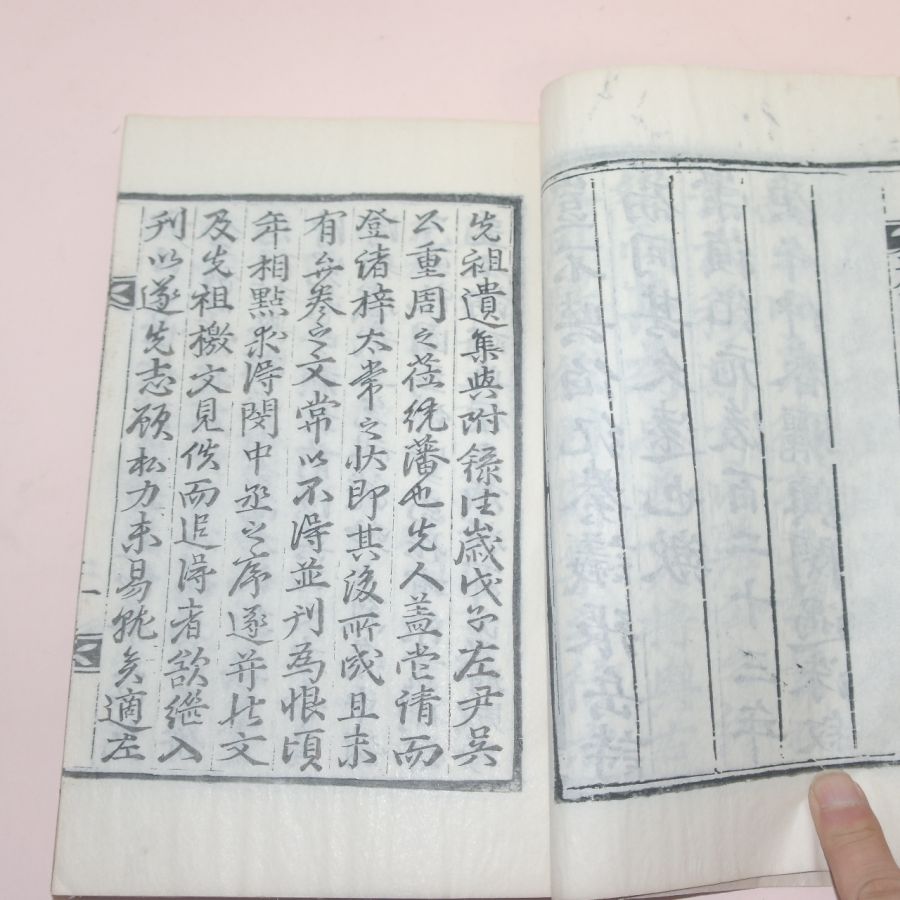 先祖遺集與附錄往歲戊子左尹吳
公重周之莅統藩也先人盖嘗請而
登諸梓太常之狀即其後所成且未
有弁卷之文常以不得並刊為恨頃
年相點求得閔中丞之序遂并此文
及先祖檄文見佚而追得者欲繼入
刊以遂先志顧松力未易就矣適左